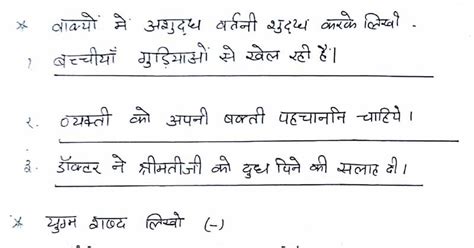 * वाक्यों में अशुद्ध वर्तनी शुद्ध करके लिखो -
१ बच्चीयाँ गुड़ियाओं से खेल रही हैं।
२. व्यक्ती को अपनी बक्ती पहचाननि चाहिये।
३. डॉक्टर ने श्रीमतीजी को दुध पिने की सलाह दी।
* युग्म शब्द लिखो (-)